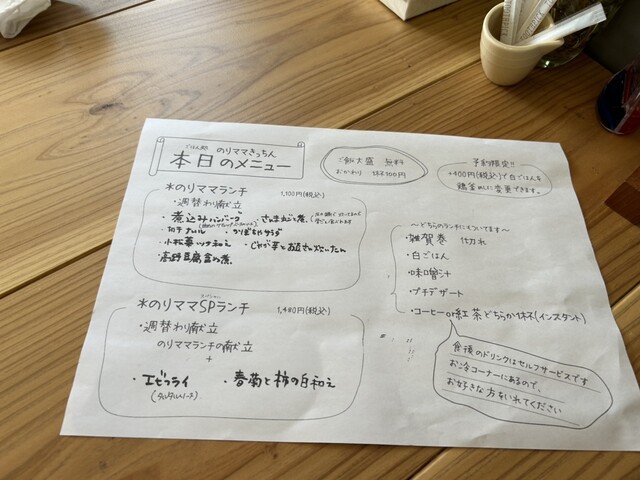 ごはん処 のりママきっちん
本日のメニュー
ご飯大盛 無料
おかわり 1杯100円
予約限定!!
+400円(税込)で白ごはんを
鶏釜めしに変更できます。
*のりママランチ 1,100円(税込)
・週替わり献立
・煮込みハンバーグ ・さんまおろし煮
・切干ナムル ・かぼちゃサラダ
・小松菜ツナ和え ・じゃが芋と
・高野豆腐含め煮
〜どちらのランチにもついてます〜
・雑賀巻 1切れ
・白ごはん
・味噌汁
・プチデザート
・コーヒーor紅茶どちらか1杯(インスタント)
食後のドリンクはセルフサービスです
お冷コーナーにあるので、
お好きな方をいれてください
*のりママSPランチ 1,480円(税込)
・週替わり献立
のりママランチの献立
+
・エビフライ ・春菊と柿の白和え
(タルタルソース)